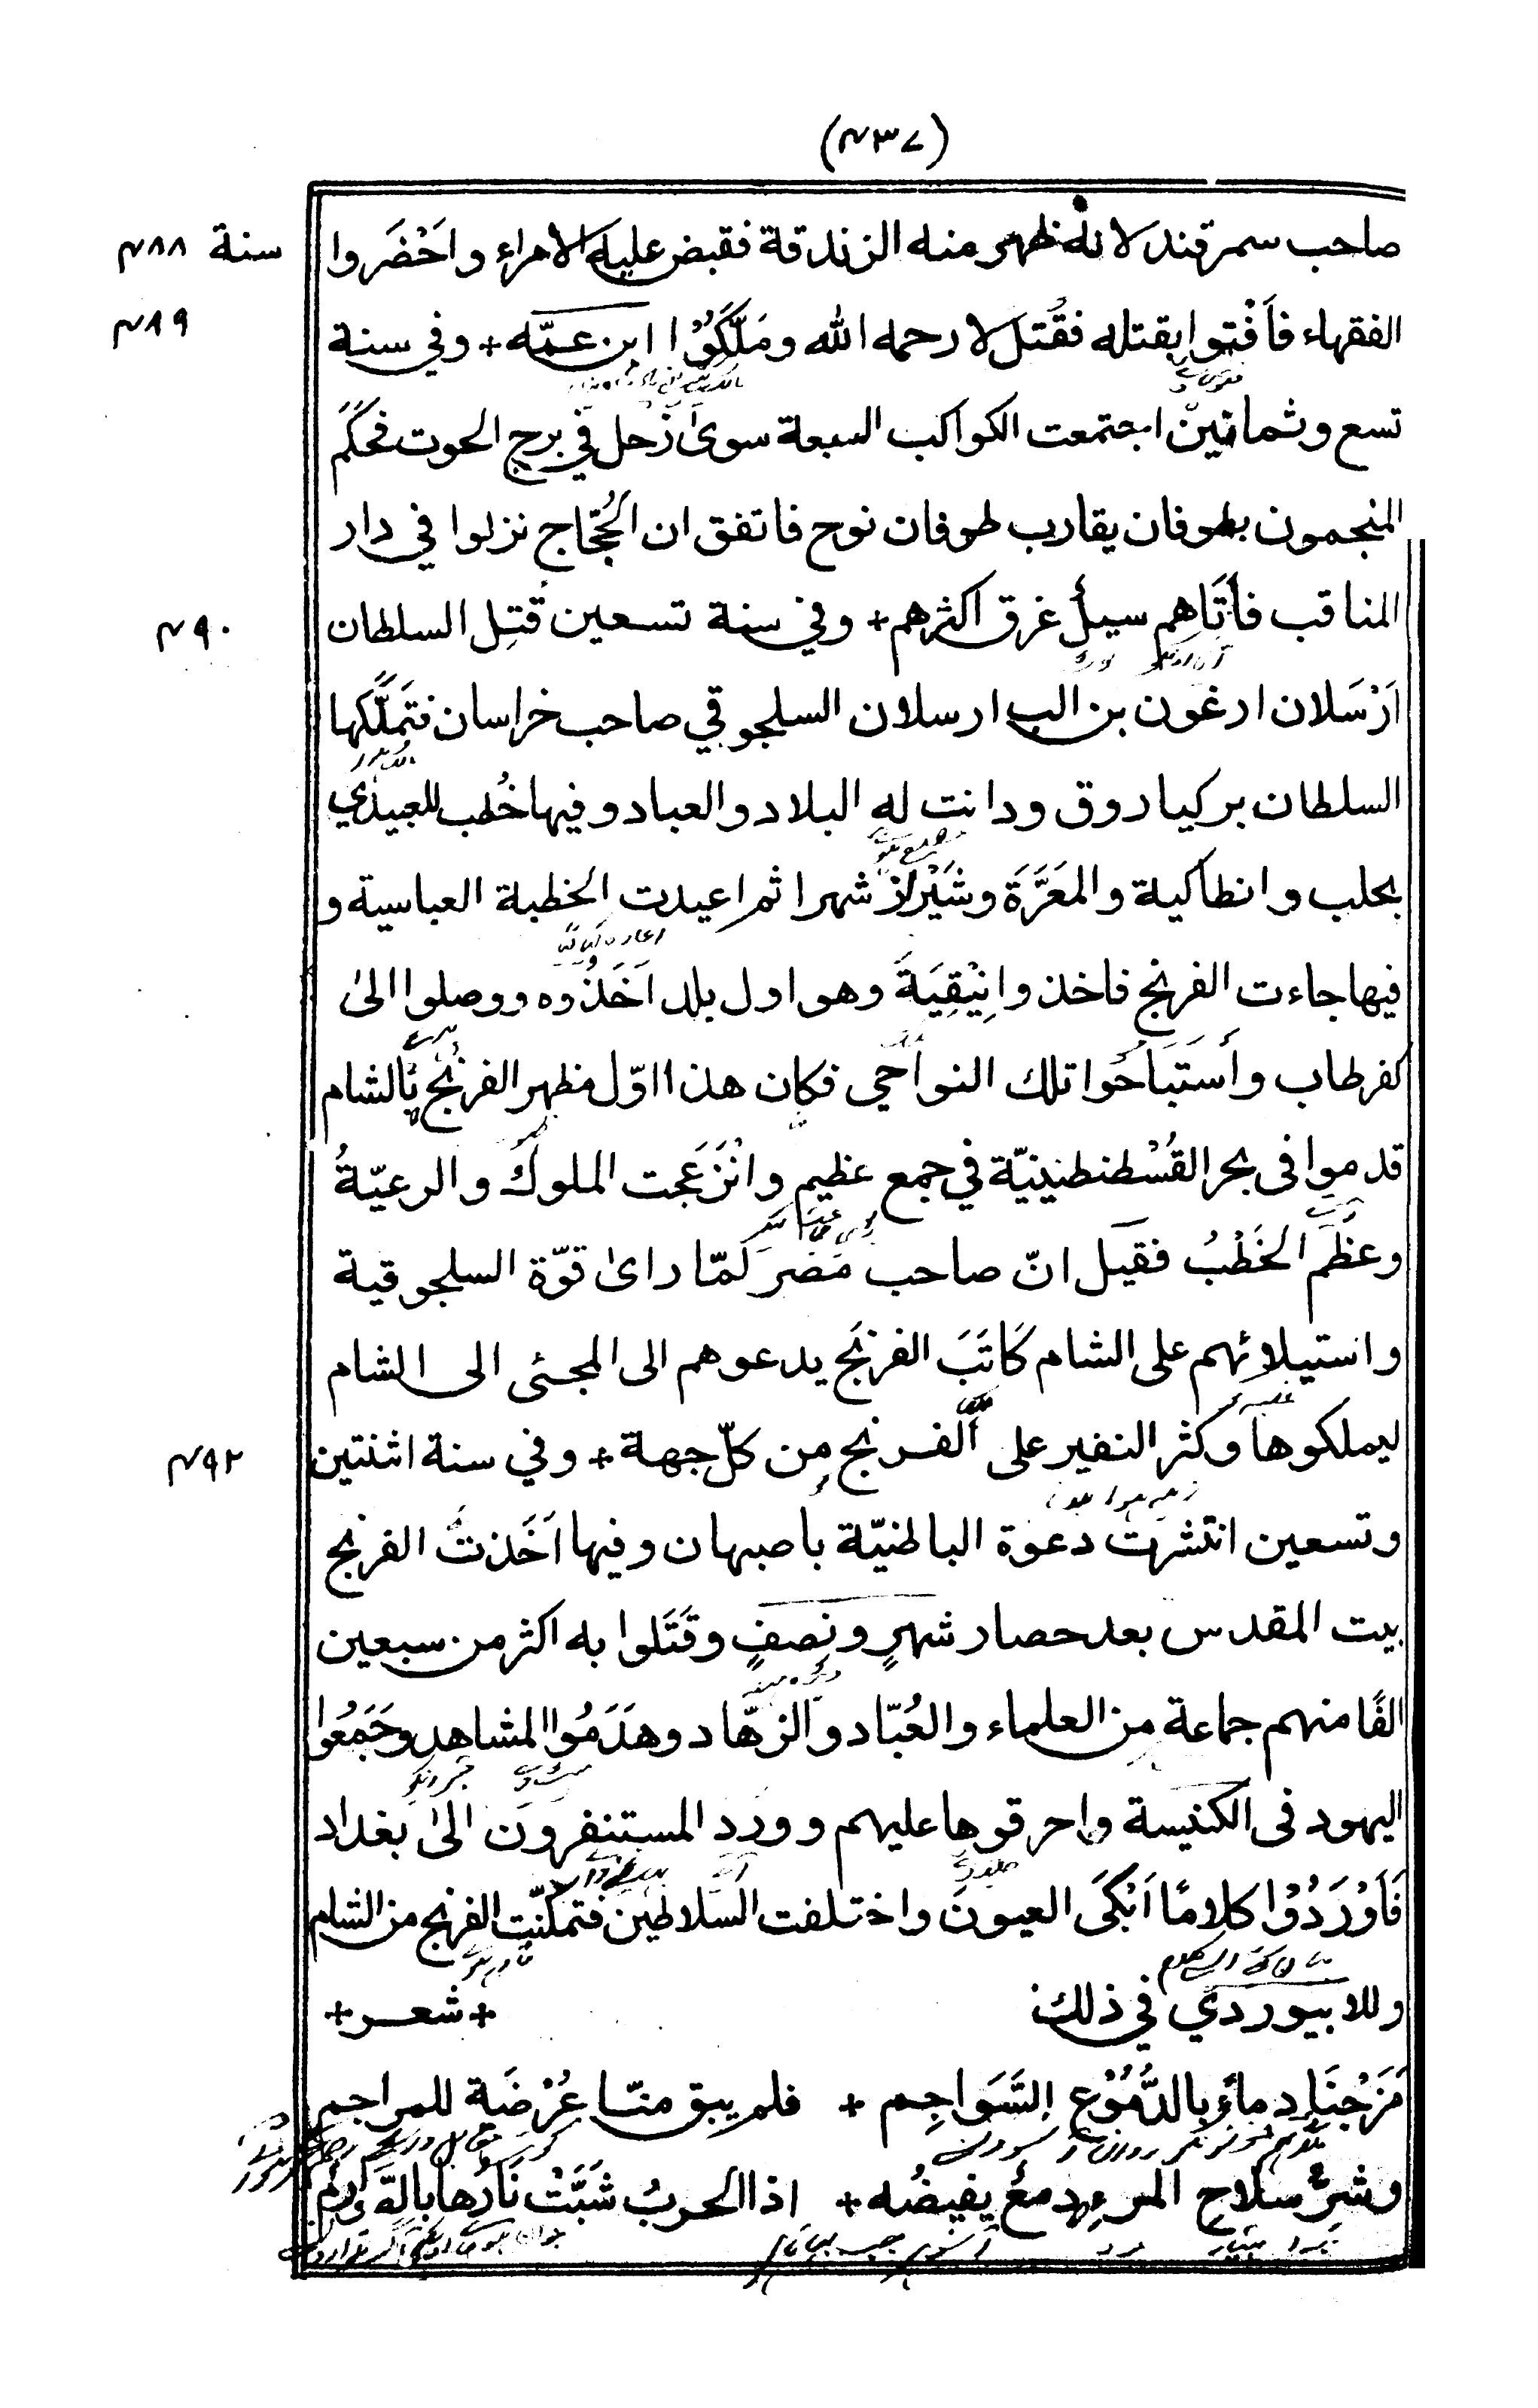 (٤٣٧)
صاحب سمرقند لانه ظهر منه الزندقة فقبض عليه الامراء واحْضَروا
سنة ٤٨٨
الفقهاء فاَفْتوا بقتله فقُتل لا رحمه الله ومَلَّكَوُْا ابن عمّه + وفي سنة
٤٨٩
تسع وثمانين اجتمعت الكواكب السبعة سوىٰ زُحل في برج الحوت فحكَم
المنجمون بطوفان يقارب طوفان نوح فاتفق ان الحُجّاج نزلوا في دار
المناقب فأتَاهم سيلٌ غرق اكثرهم + وفي سنة تسعين قُتِل السلطان
٤٩٠
اَرْسَلان ارغون بن الب ارسلان السلجوقي صاحب خراسان فتَملَّكها
السلطان بركياروق ودانت له البلاد والعباد وفيها خُطب للعبيدي
بحلب وانطاكية والمَعَرَّةَ وشَيْزَرَ شهرا ثم اعيدت الخطبة العباسية و
فيها جاءت الفرنج فاخذوا نِيْقِيَةَ وهو اول بلد اَخَذُوه ووصلوا الىٰ
كفرطاب وأستَبَاحُوا تلك النواحي فكان هذا اوّل مظهر الفرنج بالشام
قدموا فى بحر القُسْطنطينيّة في جمع عظيم وانْزَعَجت الملوك والرعيّةُ
وعظَم الخَطْبُ فقيل انّ صاحب مَصْرَ لَمّا راىٰ قوّة السلجوقية
واستيلائهم على الشام كَاتَبَ الفرنج يدعوهم الى المجئى الى الشام
ليملكوها وكثر النفير على الفرنج مِن كلّ جهة + وفي سنة اثنتين
٤٩٢
وتسعين انتشرت دعوة الباطنيّة باصبهان وفيها اَخَذتْ الفرنج
بيت المقدس بعد حصار شهرٍ ونصفٍ وقَتَلوا به اكثر من سبعين
الفًا منهم جماعة مِن العلماء والعُبّاد والزهّاد وهَدَمُوا المشاهد وجَمَعُوا
اليهود فى الكنيسة واحرقوها عليهم وورد المستنفرون الىٰ بغداد
فَاَوْرَدُوْا كلامًا اَبْكَى العيونَ واختلفت السلاطين فتمكنّت الفرنج من الشام
وللابيوردي في ذلك + شعر +
مَزَجْنَا دماءً بالدُّمُوْعِ السَّوَاجِم + فلم يبق منّا عُرْضَة للمراجم
وشرّ سلاحِ المرءِ دمعٌ يفيضُه + اذا الحربُ شَبَّتْ نَارُها بالصّوارم